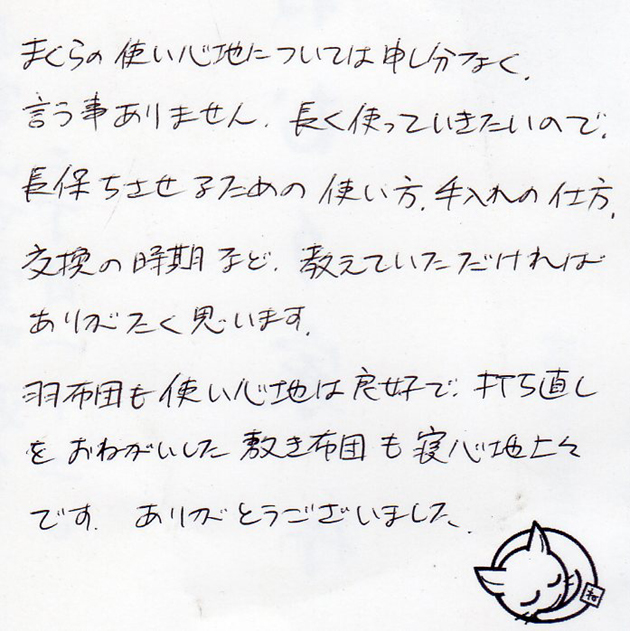 まくらの使い心地については申し分なく、
言う事ありません。長く使っていきたいので、
長保ちさせるための使い方、手入れの仕方、
交換の時期など、教えていただければ
ありがたく思います。
羽布団も使い心地は良好で、打ち直し
をおねがいした敷き布団も寝心地上々
です。ありがとうございました。